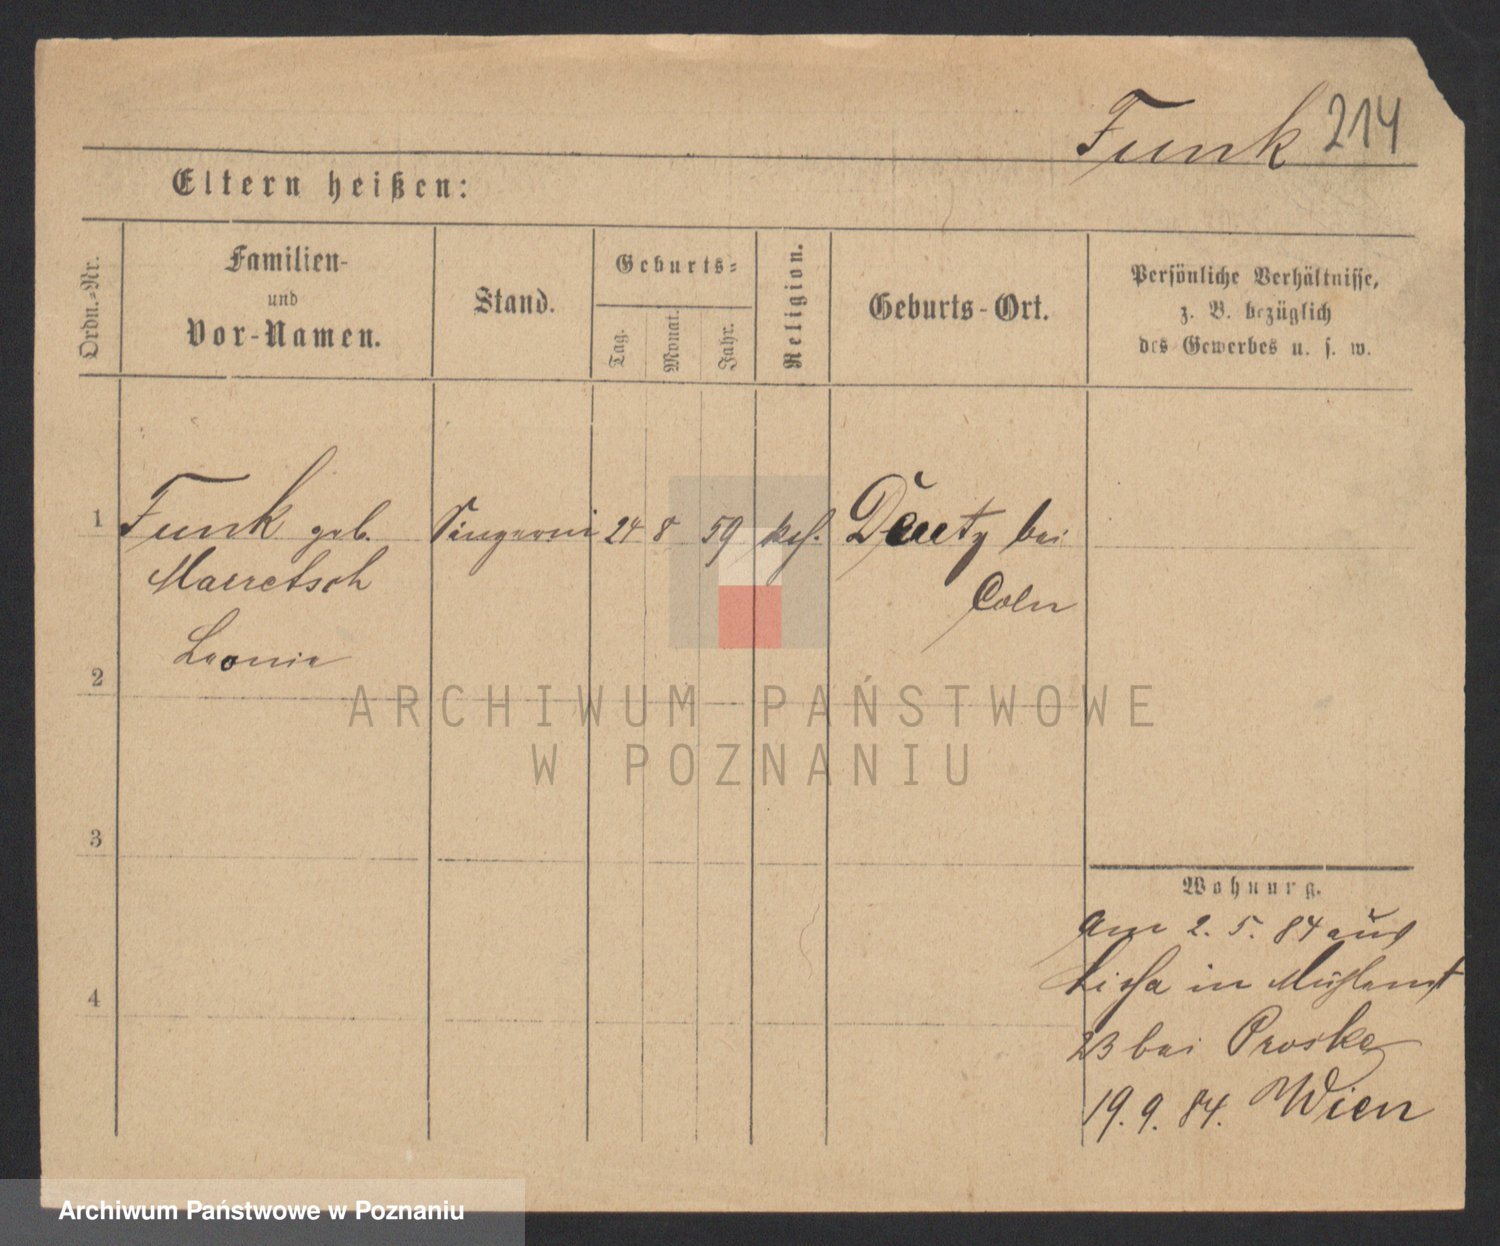 Funk 214
Eltern heißen:
Ordn.-Nr.
Familien-
und
Vor-Namen.
Stand.
Geburts-
Tag.
Monat.
Jahr.
Religion.
Geburts-Ort.
Persönliche Verhältnisse,
z. B. bezüglich
des Gewerbes u. s. w.
1 Funk geb. Sängerin 24 8 59 Deutz bei
Mairetsch Coeln
Leonie
2
3
4
Wohnung.
am 2. 5. 84 aus
Lissa in Mühlenst
23 bei Proske
19. 9. 84. Wien
ARCHIWUM PAŃSTWOWE
W POZNANIU
Archiwum Państwowe w Poznaniu